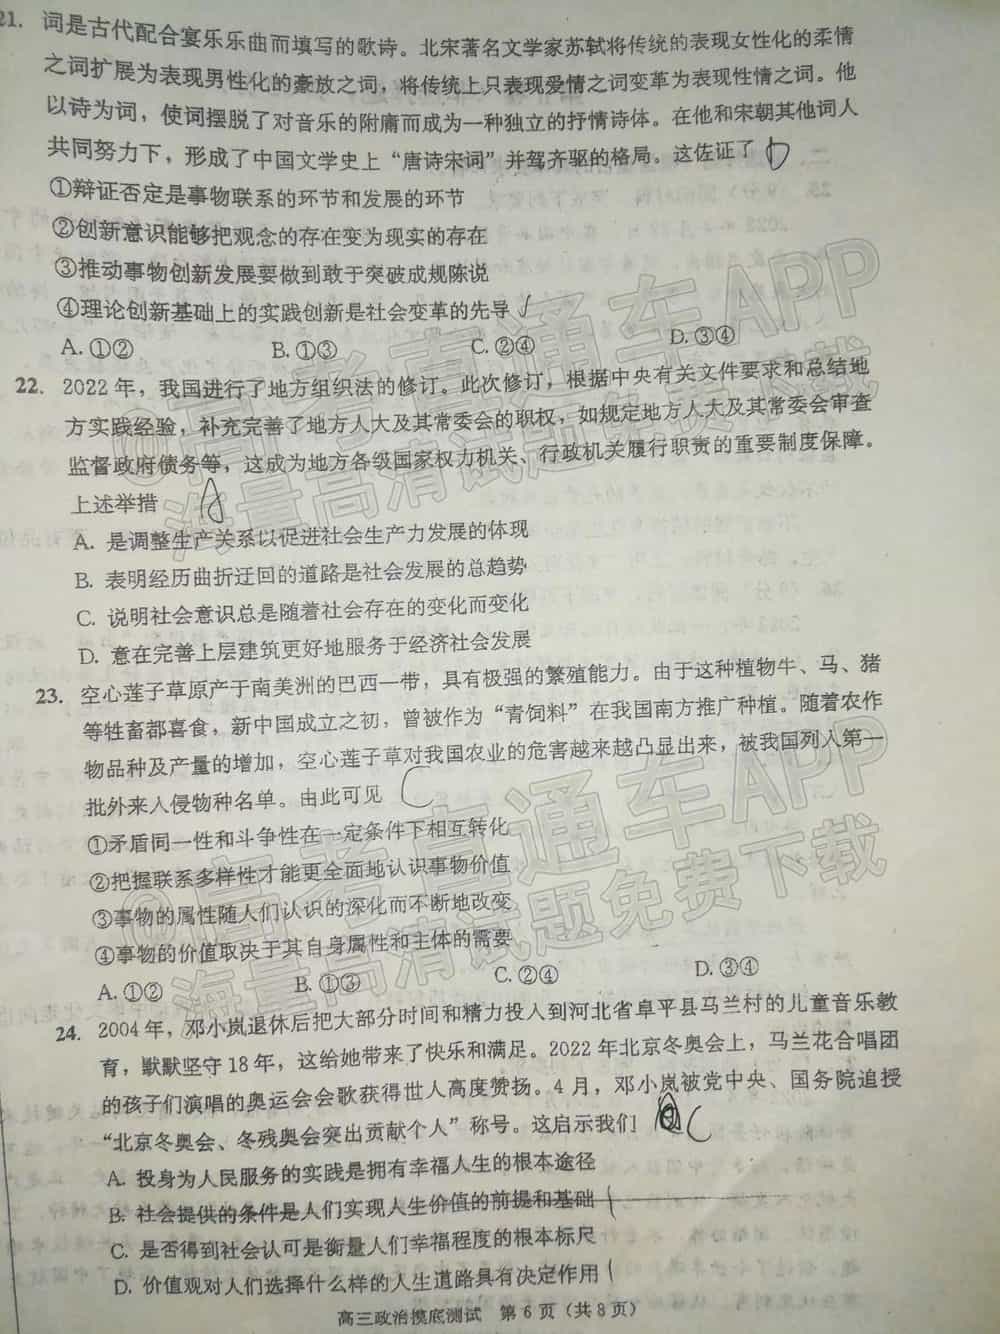 21. 词是古代配合宴乐乐曲而填写的歌诗。北宋著名文学家苏轼将传统的表现女性化的柔情
之词扩展为表现男性化的豪放之词，将传统上只表现爱情之词变革为表现性情之词。他
以诗为词，使词摆脱了对音乐的附庸而成为一种独立的抒情诗体。在他和宋朝其他词人
共同努力下，形成了中国文学史上“唐诗宋词”并驾齐驱的格局。这佐证了 b
①辩证否定是事物联系的环节和发展的环节
②创新意识能够把观念的存在变为现实的存在
③推动事物创新发展要做到敢于突破成规陈说
④理论创新基础上的实践创新是社会变革的先导
A. ①② B. ①③ C. ②④ D. ③④
22. 2022年，我国进行了地方组织法的修订。此次修订，根据中央有关文件要求和总结地
方实践经验，补充完善了地方人大及其常委会的职权，如规定地方人大及其常委会审查
监督政府债务等，这成为地方各级国家权力机关、行政机关履行职责的重要制度保障。
上述举措 A
A. 是调整生产关系以促进社会生产力发展的体现
B. 表明经历曲折迂回的道路是社会发展的总趋势
C. 说明社会意识总是随着社会存在的变化而变化
D. 意在完善上层建筑更好地服务于经济社会发展
23. 空心莲子草原产于南美洲的巴西一带，具有极强的繁殖能力。由于这种植物牛、马、猪
等牲畜都喜食，新中国成立之初，曾被作为“青饲料”在我国南方推广种植。随着农作
物品种及产量的增加，空心莲子草对我国农业的危害越来越凸显出来，被我国列入第一
批外来入侵物种名单。由此可见 C
①矛盾同一性和斗争性在一定条件下相互转化
②把握联系多样性才能更全面地认识事物价值
③事物的属性随人们认识的深化而不断地改变
④事物的价值取决于其自身属性和主体的需要
A. ①② B. ①③ C. ②④ D. ③④
24. 2004年，邓小岚退休后把大部分时间和精力投入到河北省阜平县马兰村的儿童音乐教
育，默默坚守18年，这给她带来了快乐和满足。2022年北京冬奥会上，马兰花合唱团
的孩子们演唱的奥运会会歌获得世人高度赞扬。4月，邓小岚被党中央、国务院追授
“北京冬奥会、冬残奥会突出贡献个人”称号。这启示我们 C
A. 投身为人民服务的实践是拥有幸福人生的根本途径
B. 社会提供的条件是人们实现人生价值的前提和基础
C. 是否得到社会认可是衡量人们幸福程度的根本标尺
D. 价值观对人们选择什么样的人生道路具有决定作用
高三政治摸底测试 第6页（共8页）
@高考直通车APP
海量高清试题免费下载
@高考直通车APP
海量高清试题免费下载